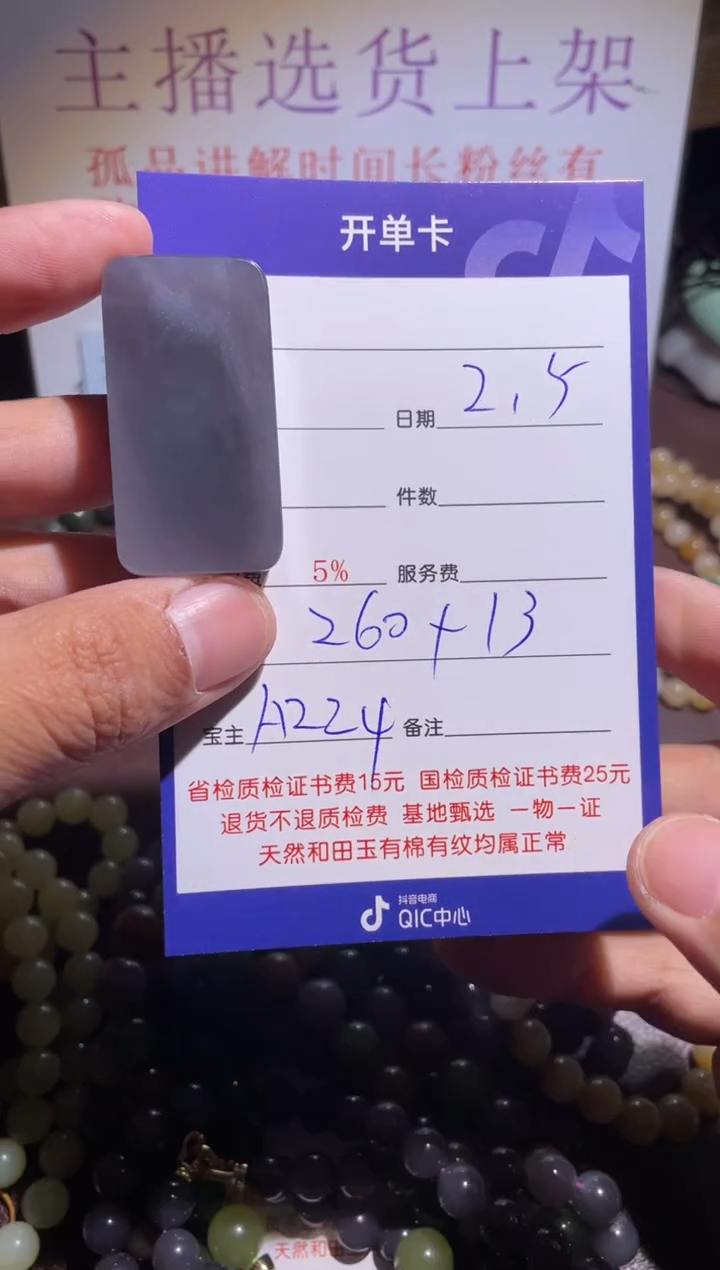 主播选货上架
孤品讲解时间长粉丝有
开单卡
日期 2.5
件数
5% 服务费
260+13
宝主 A224 备注
省检质检证书费15元 国检质检证书费25元
退货不退质检费 基地甄选 一物一证
天然和田玉有棉有纹均属正常
抖音电商
QIC中心
天然和田